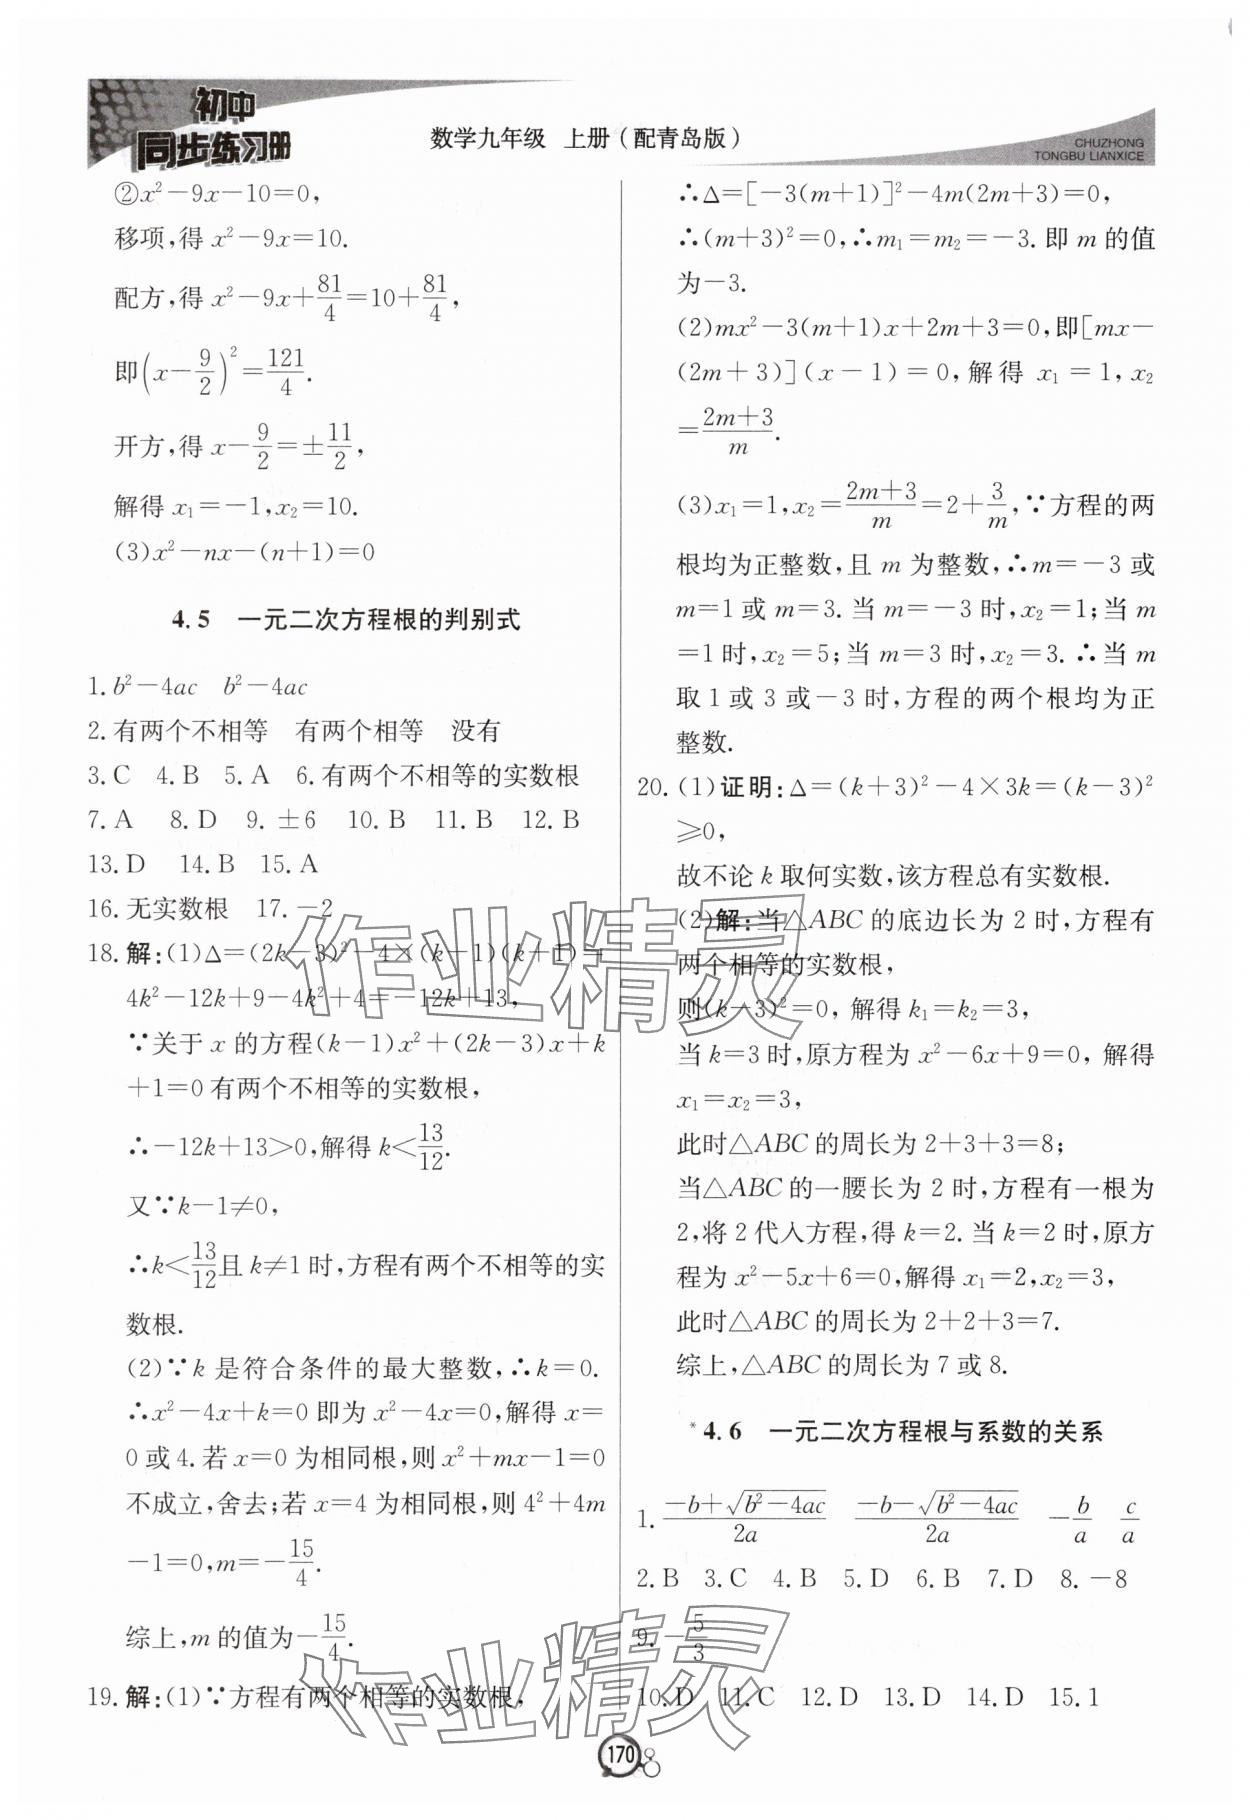 初中
同步练习册
数学九年级 上册(配青岛版)
CHUZHONG
TONGBU LIANXICE
②x²-9x-10=0,
移项,得 x²-9x=10.
配方,得 x²-9x+81/4=10+81/4,
即(x-9/2)²=121/4.
开方,得 x-9/2=±11/2,
解得 x₁=-1,x₂=10.
(3)x²-nx-(n+1)=0
4.5 一元二次方程根的判别式
1.b²-4ac b²-4ac
2.有两个不相等 有两个相等 没有
3.C 4.B 5.A 6.有两个不相等的实数根
7.A 8.D 9.±6 10.B 11.B 12.B
13.D 14.B 15.A
16.无实数根 17.-2
18.解:(1)Δ=(2k-3)²-4×(k-1)(k+1)=
4k²-12k+9-4k²+4=-12k+13,
∵关于 x 的方程(k-1)x²+(2k-3)x+k
+1=0有两个不相等的实数根,
∴-12k+13>0,解得 k<13/12.
又∵k-1≠0,
∴k<13/12且 k≠1时,方程有两个不相等的实
数根.
(2)∵k 是符合条件的最大整数,∴k=0.
∴x²-4x+k=0即为 x²-4x=0,解得 x=
0或4.若 x=0为相同根,则 x²+mx-1=0
不成立,舍去;若 x=4为相同根,则4²+4m
-1=0,m=-15/4.
综上,m 的值为-15/4.
19.解:(1)∵方程有两个相等的实数根,
∴Δ=[-3(m+1)]²-4m(2m+3)=0,
∴(m+3)²=0,∴m₁=m₂=-3.即 m 的值
为-3.
(2)mx²-3(m+1)x+2m+3=0,即[mx-
(2m+3)](x-1)=0,解得 x₁=1,x₂
=(2m+3)/m.
(3)x₁=1,x₂=(2m+3)/m=2+3/m,∵方程的两
根均为正整数,且 m 为整数,∴m=-3或
m=1或 m=3.当 m=-3时,x₂=1;当 m
=1时,x₂=5;当 m=3时,x₂=3.∴当 m
取1或3或-3时,方程的两个根均为正
整数.
20.(1)证明:Δ=(k+3)²-4×3k=(k-3)²
≥0,
故不论 k 取何实数,该方程总有实数根.
(2)解:当△ABC 的底边长为2时,方程有
两个相等的实数根,
则(k-3)²=0,解得 k₁=k₂=3,
当 k=3时,原方程为 x²-6x+9=0,解得
x₁=x₂=3,
此时△ABC 的周长为2+3+3=8;
当△ABC 的一腰长为2时,方程有一根为
2,将2代入方程,得 k=2.当 k=2时,原方
程为 x²-5x+6=0,解得 x₁=2,x₂=3,
此时△ABC 的周长为2+2+3=7.
综上,△ABC 的周长为7或8.
*4.6 一元二次方程根与系数的关系
1.(-b+√(b²-4ac))/2a (-b-√(b²-4ac))/2a -b/a c/a
2.B 3.C 4.B 5.D 6.B 7.D 8.-8
9.-5/3
10.D 11.C 12.D 13.D 14.D 15.1
作业精灵
作业精灵
170